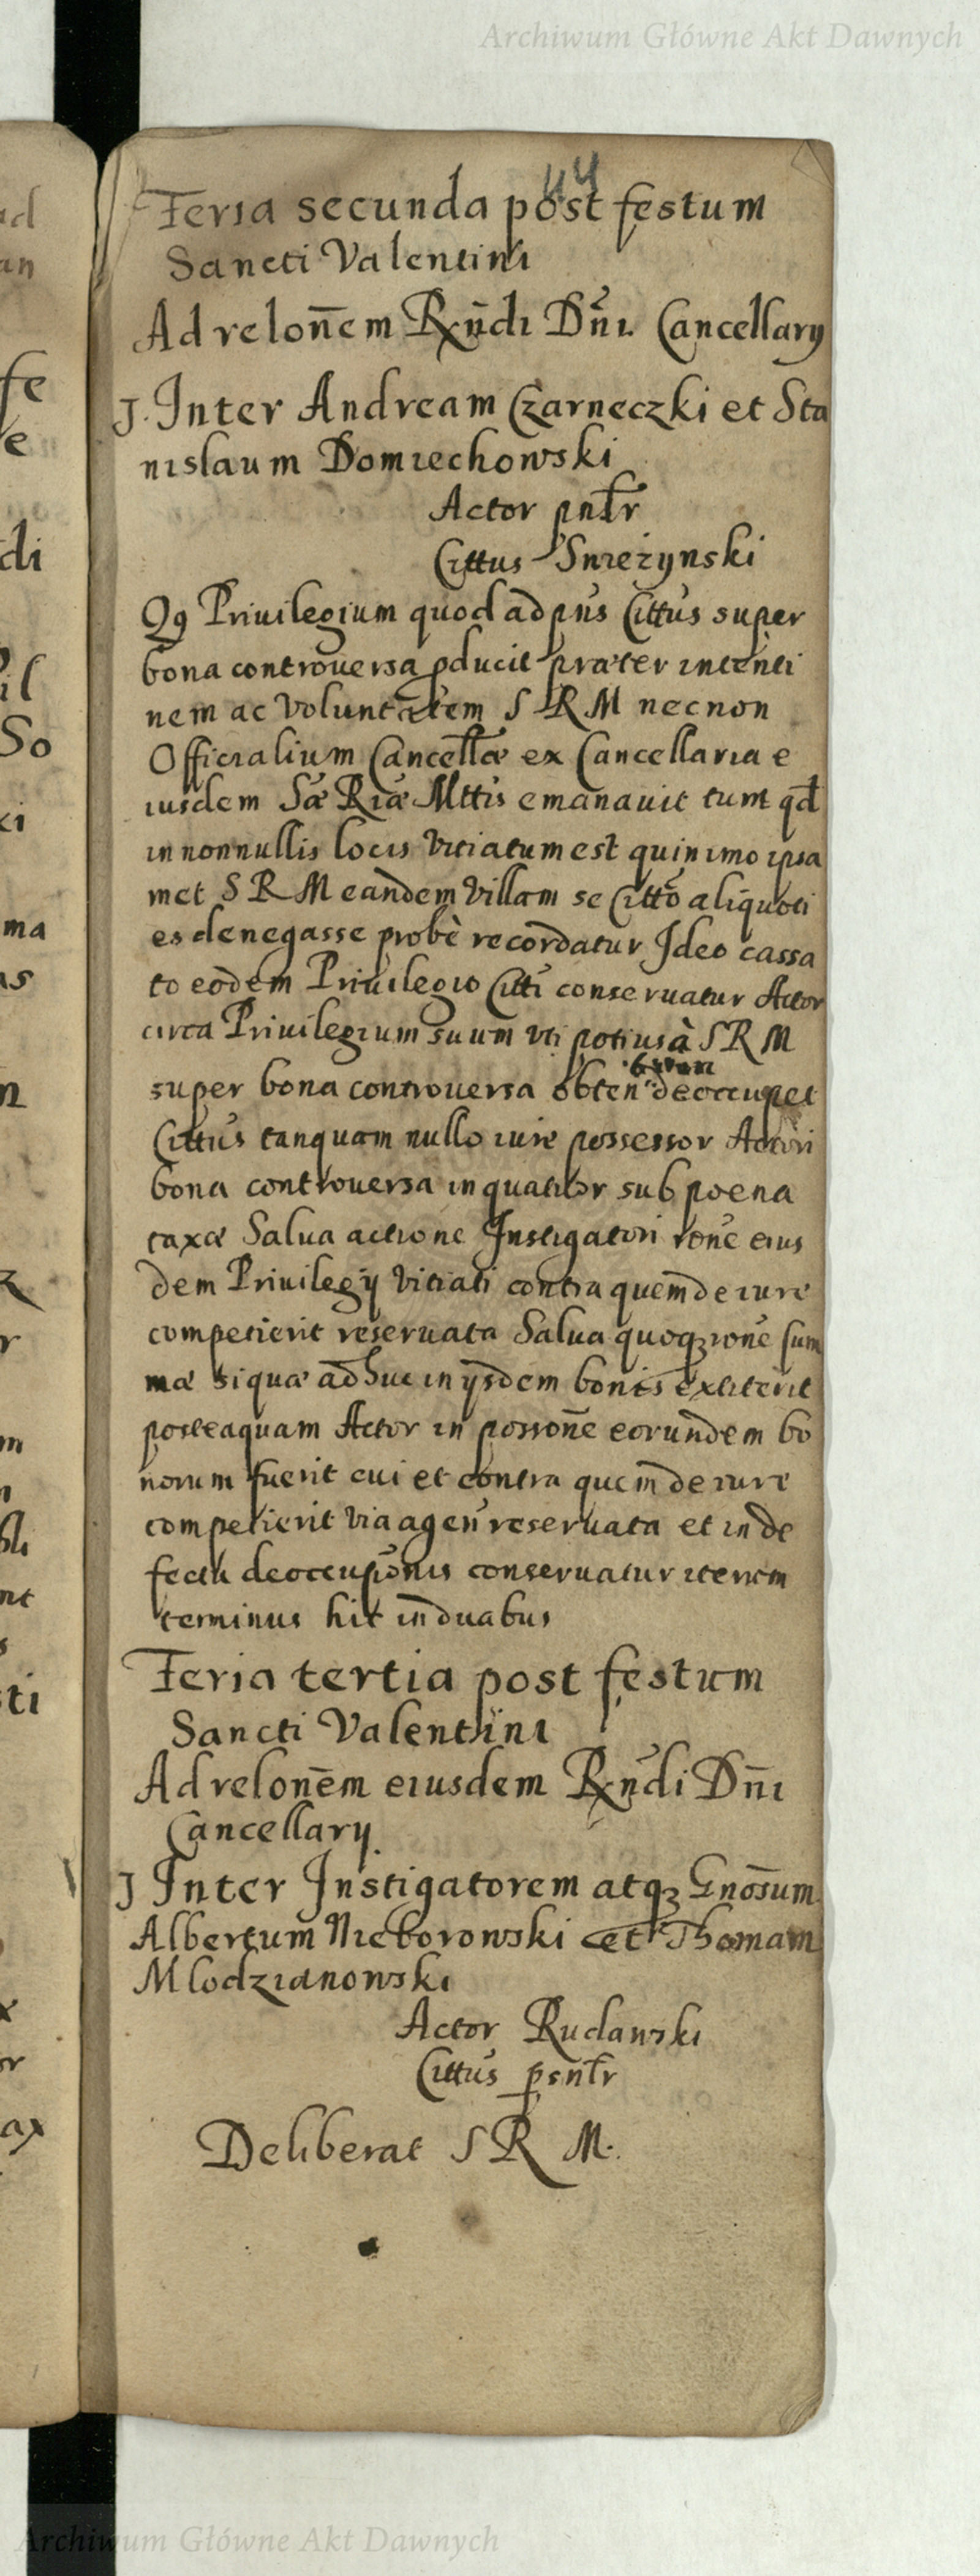 Archiwum Główne Akt Dawnych
44
Feria secunda post festum
Sancti Valentini
Ad relon̄em Rx̄ndi Dn̄i Cancellary
J. Inter Andream Czarneczki et Sta
nislaum Domiechowski
Actor pnt̄r
Cittus Snieżynski
Qꝫ Priuilegium quod ad pn̄s Citt̄us super
bona controuersa ꝓducit præter intenti
nem ac Voluntatem S R M necnon
Officialium Cancellæ ex Cancellaria e
iusdem Sæ Riæ Mttis emanauit tum qd̄
in nonnullis locis Vitiatum est quin imo ipsa
met S R M eandem Villam se Citt̄o aliquoti
es denegasse probè recordatur Ideo cassa
to eodem Priuilegio Citti conseruatur Actor
circa Priuilegium suum vti potius à S R M
super bona controuersa obten deoccupet
Cittus tanquam nullo iure possessor Actori
bona controuersa in quatuor sub poena
taxæ Salua actione Instigatori rōne eius
dem Priuilegÿ Vitiati contra quem de iure
competierit reseruata Salua quoqꝫ rōne sum
mæ siqua adhuc in ÿsdem bonis extiterit
posteaquam Actor in possonē eorundem bo
norum fuerit cui et contra quem de iure
competierit via agen̄ reseruata et in de
fectu deoccupōnis conseruatur iterum
terminus hit in duabus
Feria tertia post festum
Sancti Valentini
Ad relonēm eiusdem Rx̄ndi Dn̄i
Cancellary
J Inter Instigatorem atqꝫ Gnōsum
Albertum Nieborowski et Thomam
Mlodzianowski
Actor Rudawski
Cittus psnt̄r
Deliberat S R M.
Archiwum Główne Akt Dawnych